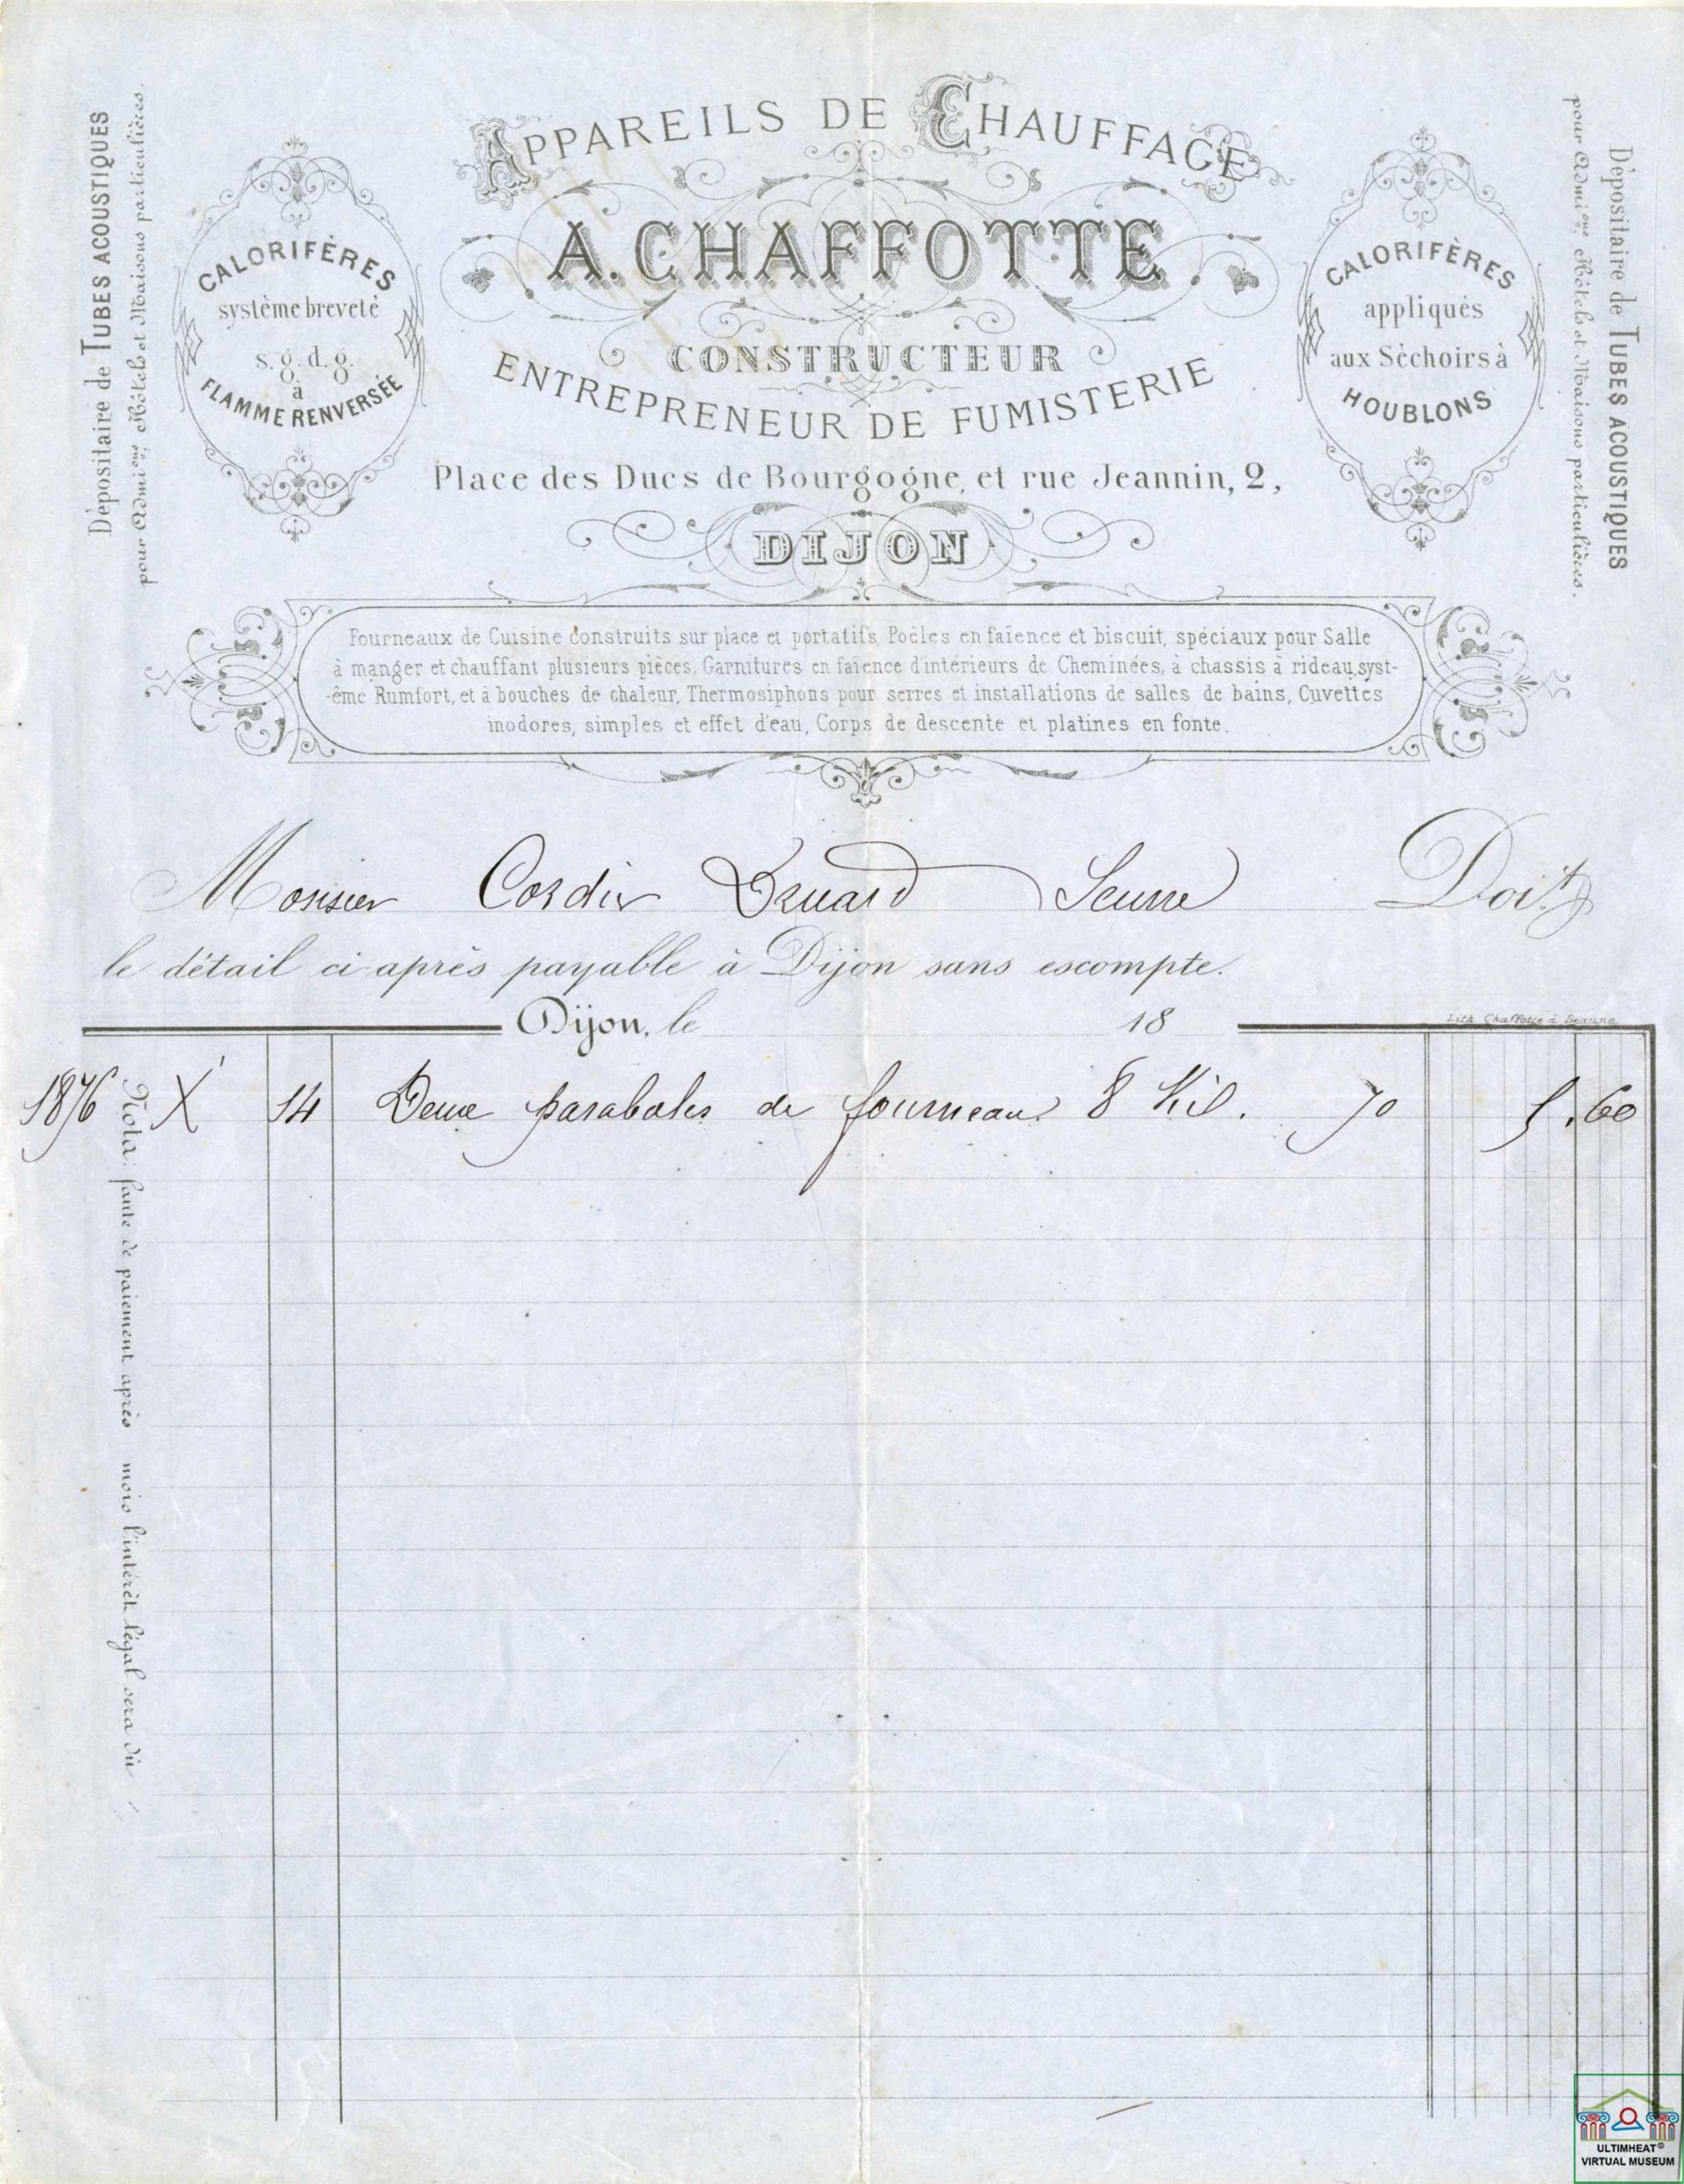 Dépositaire de TUBES ACOUSTIQUES
pour Admi.ons Hôtels et Maisons particulières.
CALORIFÈRES
système breveté
s.g.d.g.
à
FLAMME RENVERSÉE
APPAREILS DE CHAUFFAGE
A. CHAFFOTTE
CONSTRUCTEUR
ENTREPRENEUR DE FUMISTERIE
Place des Ducs de Bourgogne, et rue Jeannin, 2,
DIJON
CALORIFÈRES
appliqués
aux Séchoirs à
HOUBLONS
Dépositaire de TUBES ACOUSTIQUES
pour Admi.ons Hôtels et Maisons particulières.
Fourneaux de Cuisine construits sur place et portatifs, Poëles en faïence et biscuit, spéciaux pour Salle
à manger et chauffant plusieurs pièces, Garnitures en faïence d'intérieurs de Cheminées, à chassis à rideau, syst-
-ême Rumfort, et à bouches de chaleur, Thermosiphons pour serres et installations de salles de bains, Cuvettes
inodores, simples et effet d'eau, Corps de descente et platines en fonte.
Monsieur Cordier Druard Seurre Doit
le détail ci-après payable à Dijon sans escompte.
Dijon, le 18
Lith. Chaffotte à Beaune
1876 X 14 Deux paraboles de fourneau 8 Kil. 70 5.60
Nota: faute de paiement après mois l'intérêt légal sera dû
ULTIMHEAT®
VIRTUAL MUSEUM